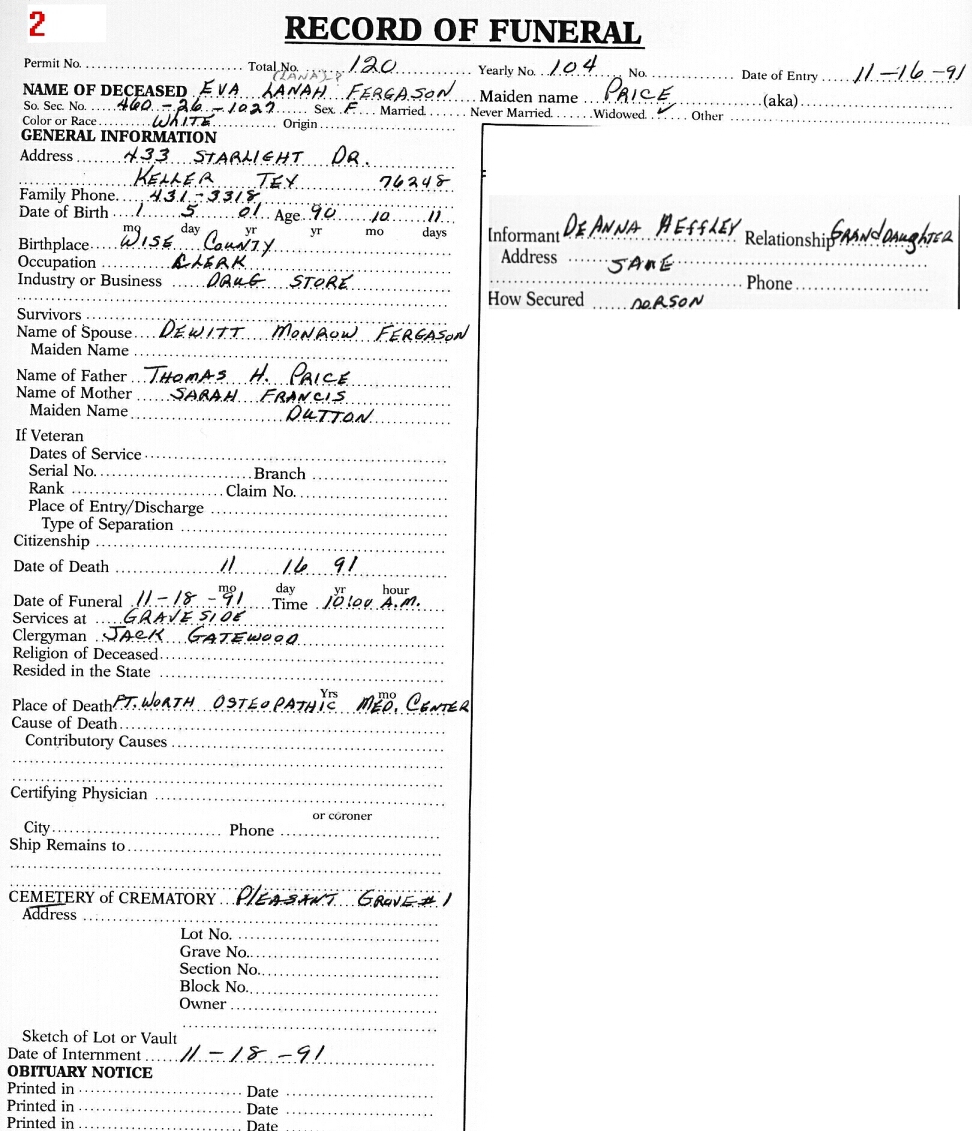 2
RECORD OF FUNERAL
Permit No. Total No. 120 Yearly No. 104 No. Date of Entry 11-16-91
(LANA)?
NAME OF DECEASED EVA LANAH FERGASON Maiden name PRICE (aka)
So. Sec. No. 460-26-1027 Sex F Married Never Married Widowed ✓ Other
Color or Race WHITE Origin
GENERAL INFORMATION
Address 433 STARLIGHT DR.
KELLER TEX 76248
Family Phone 431-3318
Date of Birth 1 5 01 Age 90 10 11
mo day yr yr mo days
Birthplace WISE COUNTY
Occupation CLERK
Industry or Business DRUG STORE
Survivors
Name of Spouse DEWITT MONROW FERGASON
Maiden Name
Name of Father THOMAS H. PRICE
Name of Mother SARAH FRANCIS
Maiden Name DUTTON
If Veteran
Dates of Service
Serial No. Branch
Rank Claim No.
Place of Entry/Discharge
Type of Separation
Citizenship
Date of Death 11 16 91
mo day yr hour
Date of Funeral 11-18-91 Time 10:00 A.M.
Services at GRAVESIDE
Clergyman JACK GATEWOOD
Religion of Deceased
Resided in the State
Yrs mo
Place of Death FT. WORTH OSTEOPATHIC MED. CENTER
Cause of Death
Contributory Causes
Certifying Physician
or coroner
City Phone
Ship Remains to
CEMETERY of CREMATORY PLEASANT GROVE #1
Address
Lot No.
Grave No.
Section No.
Block No.
Owner
Sketch of Lot or Vault
Date of Internment 11-18-91
OBITUARY NOTICE
Printed in Date
Printed in Date
Printed in Date
Informant DEANNA HEFFLEY Relationship GRANDDAUGHTER
Address SAME
Phone
How Secured PERSON